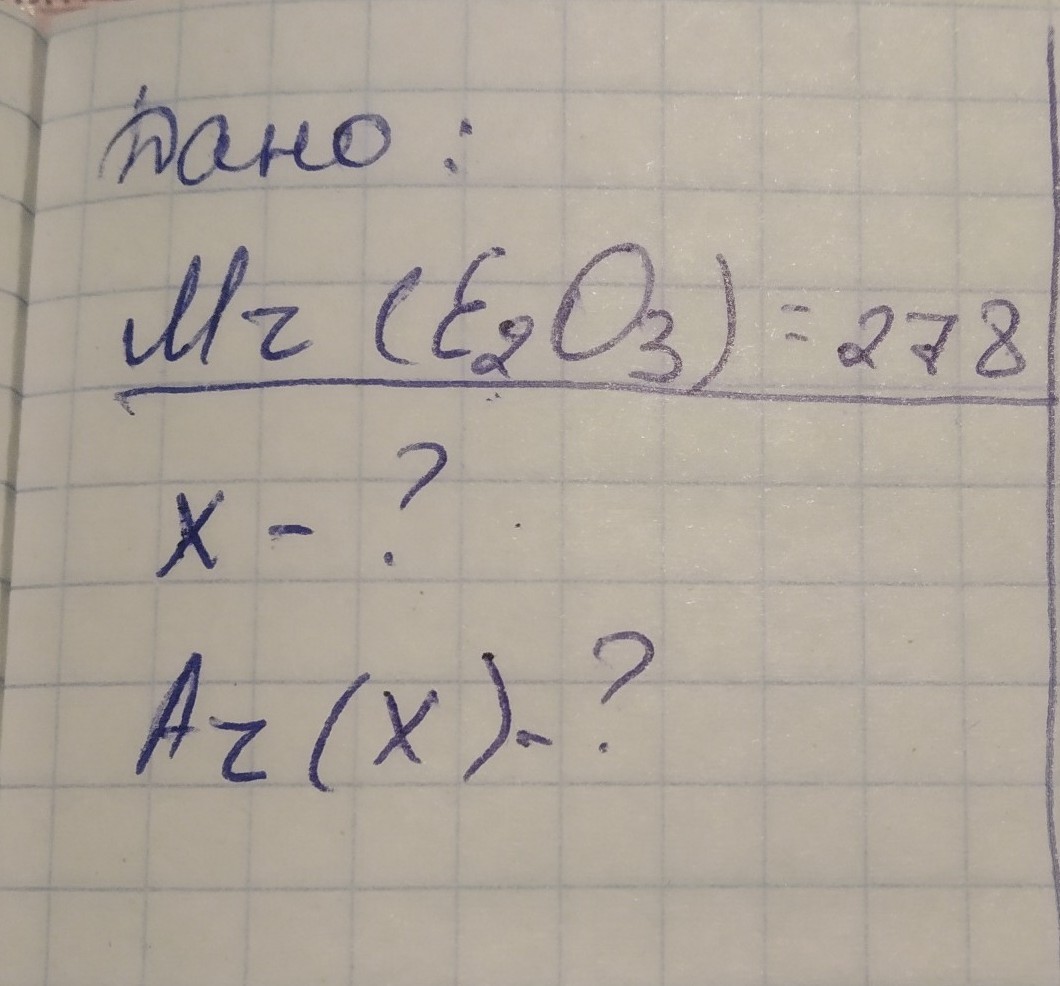 Дано:
Mr (E₂O₃) = 278
X - ?
Ar (X) - ?